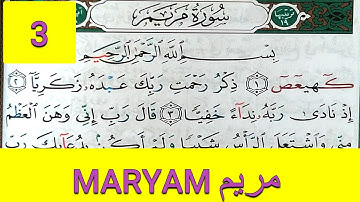 3
سُورَةُ مَرْيَمَ
بِسْمِ اللَّهِ الرَّحْمَٰنِ الرَّحِيمِ
كٓهيعٓصٓ ١ ذِكْرُ رَحْمَتِ رَبِّكَ عَبْدَهُۥ زَكَرِيَّآ ٢
إِذْ نَادَىٰ رَبَّهُۥ نِدَآءً خَفِيًّا ٣ قَالَ رَبِّ إِنِّى وَهَنَ ٱلْعَظْمُ
مِنِّى وَٱشْتَعَلَ ٱلرَّأْسُ شَيْبًا وَلَمْ أَكُنۢ بِدُعَآئِكَ رَبِّ
MARYAM مريم